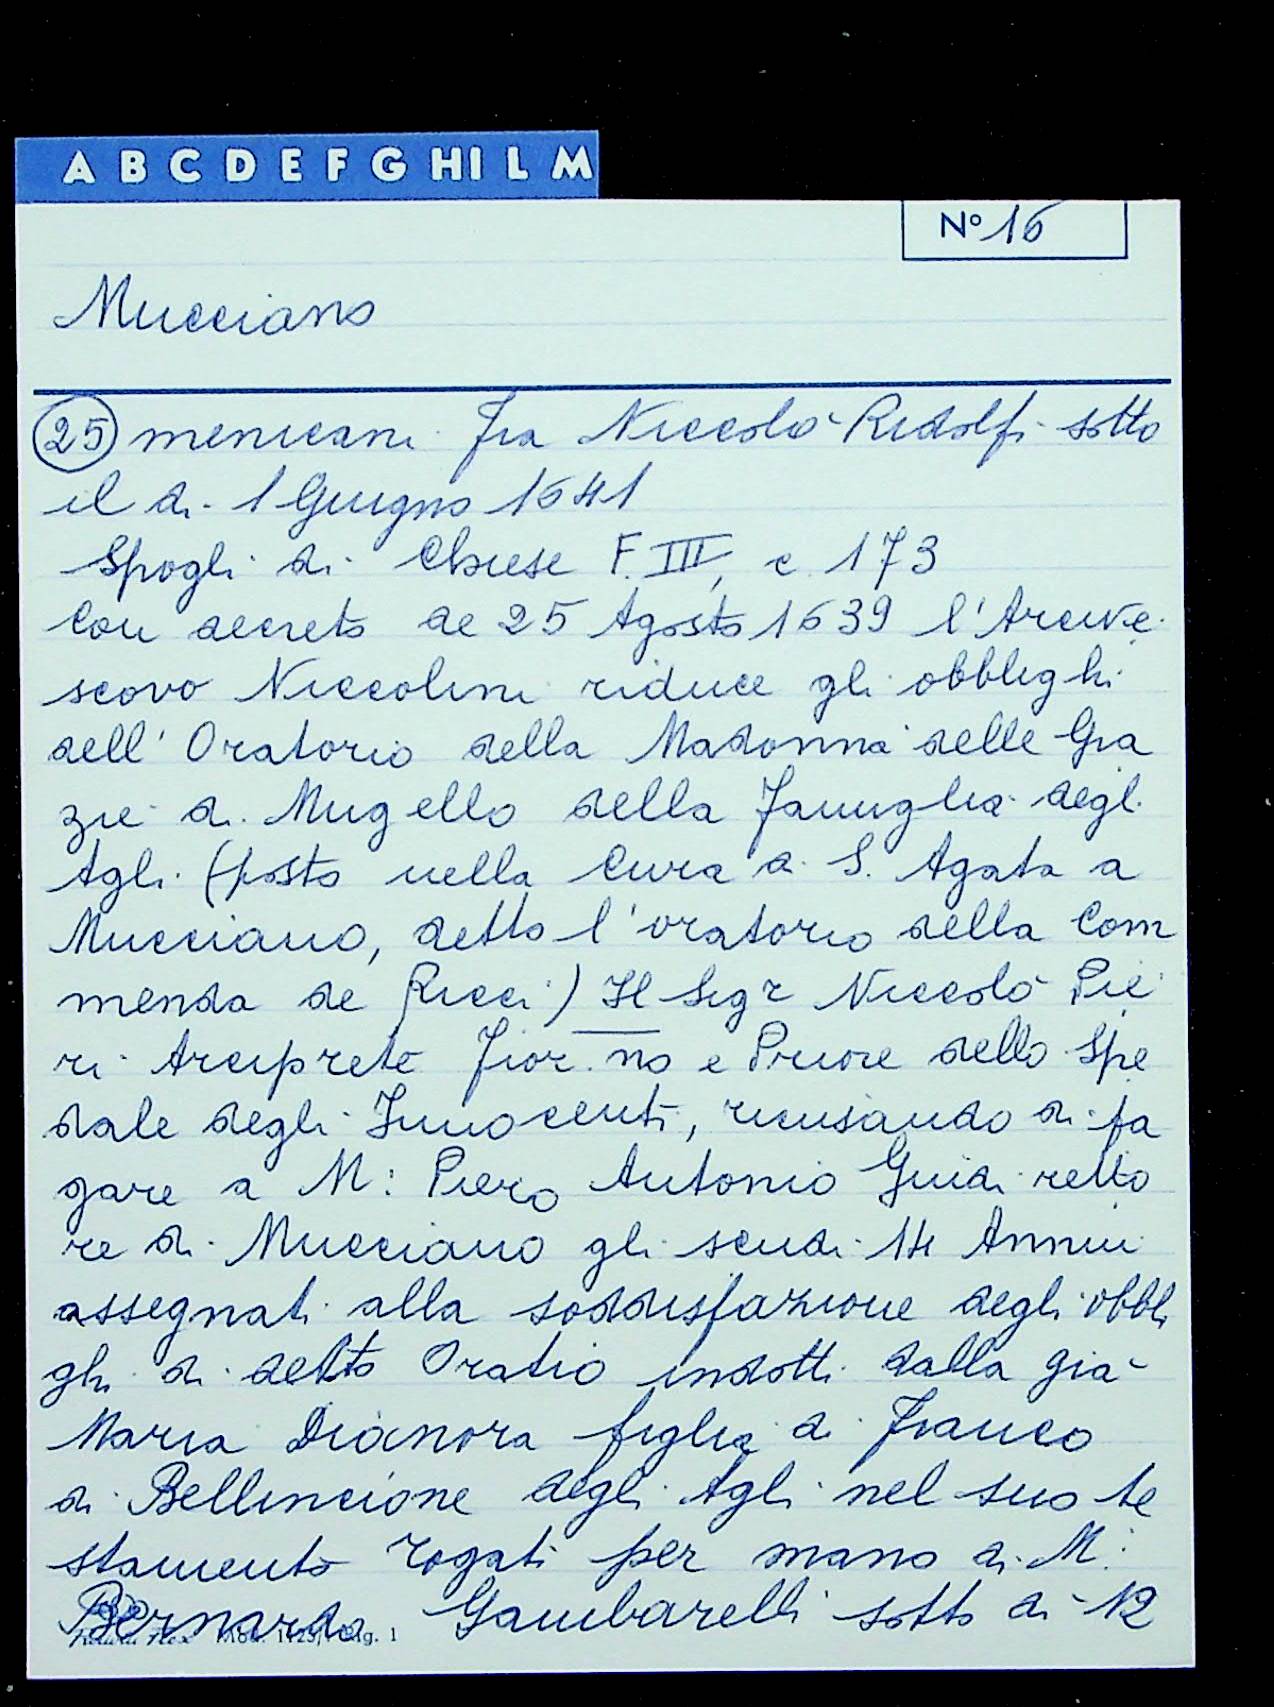 A B C D E F G HI L M
Nº 16
Mucciano
25 menicani Fra Niccolò Ridolfi sotto
il di 1 Giugno 1641
Spogli di Chiese F. III, c 173
Con decreto de 25 Agosto 1639 l'Arcive
scovo Niccolini riduce gli obblighi
dell' Oratorio della Madonna delle Gra
zie di Mugello della Famiglia degl
Agli (posto nella Cura di S. Agata a
Mucciano, detto l'oratorio della Com
menda de Ricci) Il Sigr Niccolò Pie
ri Arciprete Fior.no e Priore dello Spe
dale degli Innocenti, ricusando di pa
gare a M: Piero Antonio Guidi retto
re di Mucciano gli scudi 14 Annui
assegnati alla soddisfazione degli obbli
ghi di detto Oratio indotti dalla già
Maria Dianora figlia di Franco
di Bellincione degli Agli nel suo te
stamento rogati per mano di M:
Bernardo Gambarelli sotto di 12
Mod. 1125/ Rig. 1